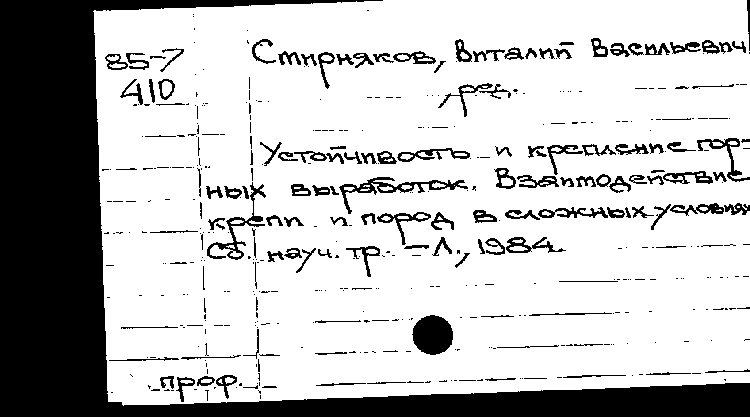 85-7 Смирняков, Виталий Васильевич
410 , ред.
Устойчивость и крепление гор-
ных выработок. Взаимодействие
крепи и пород в сложных условиях
Сб. науч. тр. – Л., 1984.
проф.